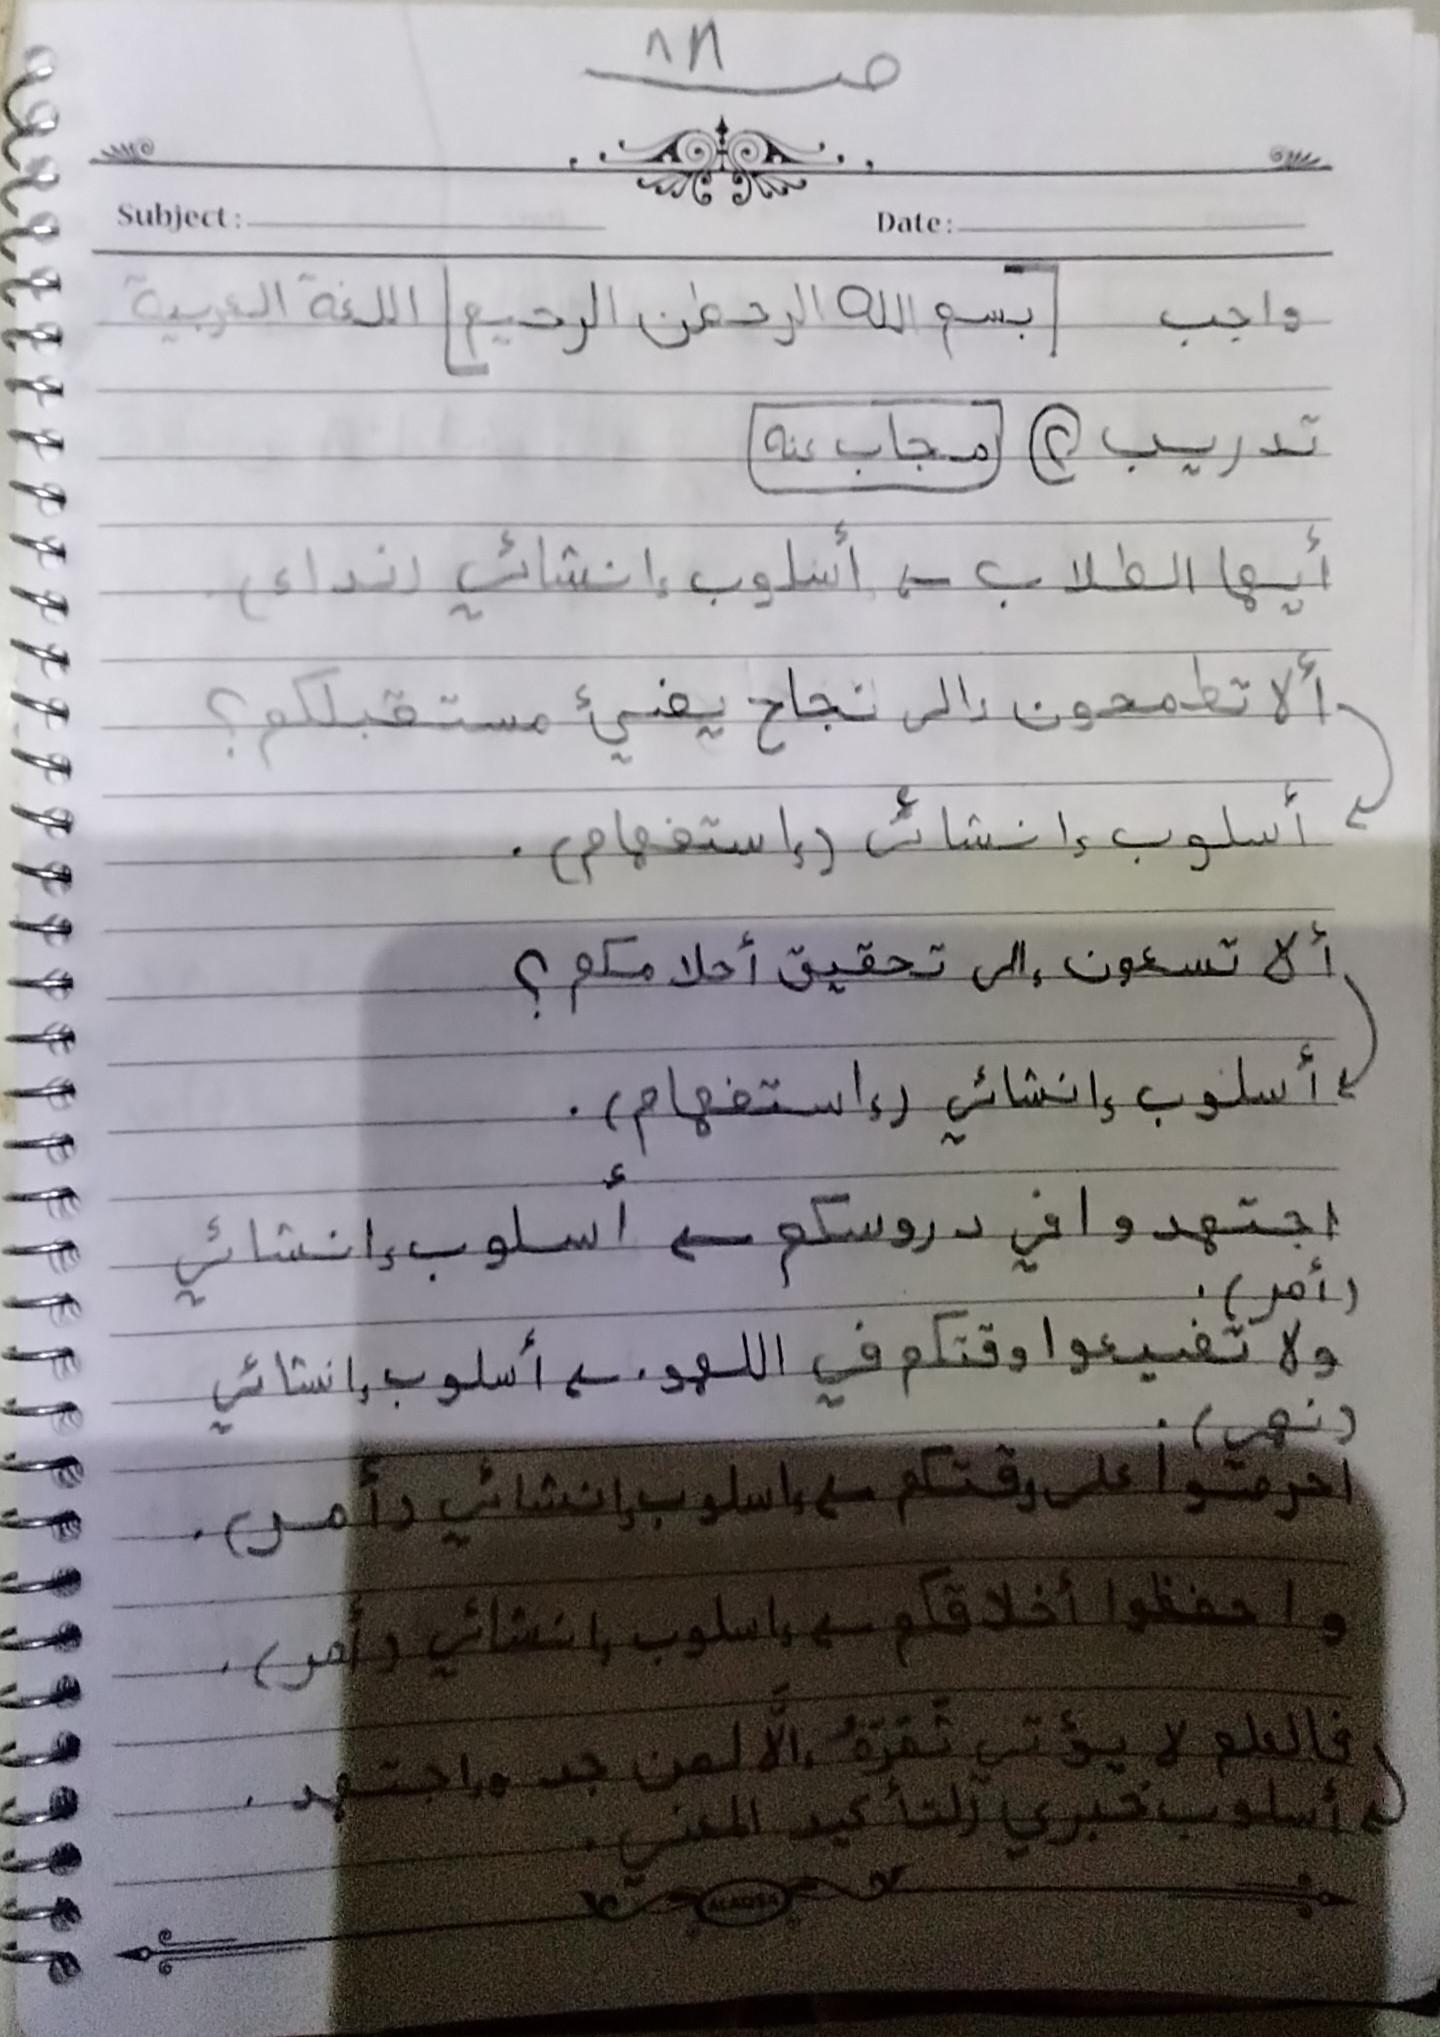 ص ٨٦
Subject: Date:
واجب [بسم الله الرحمٰن الرحيم] اللغة العربية
تدريب (٢) مجاب عنه
أيها الطلاب ← أسلوب إنشائي (نداء).
ألا تطمحون إلى نجاح يضيئ مستقبلكم؟
أسلوب إنشائي (إستفهام).
ألا تسعون إلى تحقيق أحلامكم؟
أسلوب إنشائي (إستفهام).
اجتهدوا في دروسكم ← أسلوب إنشائي
(أمر).
ولا تضيعوا وقتكم في اللهو. ← أسلوب إنشائي
(نهي).
احرصوا على وقتكم ← إسلوب إنشائي (أمر).
واحفظوا أخلاقكم ← إسلوب إنشائي (أمر).
فالعلم لا يؤتي ثمرَّهُ إلَّا لمن جد وإجتهد.
أسلوب خبري لتأكيد المعنى.
ALAQSA